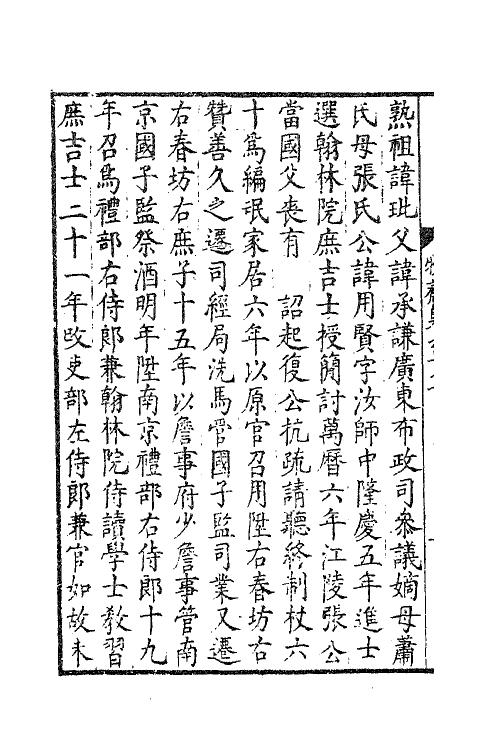 熟祖諱玭父諱承謙廣東布政司叅議嫡母蕭
氏母張氏公諱用賢字汝師中隆慶五年進士
選翰林院庶吉士授簡討萬曆六年江陵張公
當國父喪有 詔起復公抗疏請聽終制杖六
十爲編氓家居六年以原官召用陞右春坊右
贊善久之遷司經局洗馬管國子監司業又遷
右春坊右庶子十五年以詹事府少詹事管南
京國子監祭酒明年陞南京禮部右侍郎十九
年召爲禮部右侍郎兼翰林院侍讀學士教習
庶吉士二十一年改吏部左侍郎兼官如故未